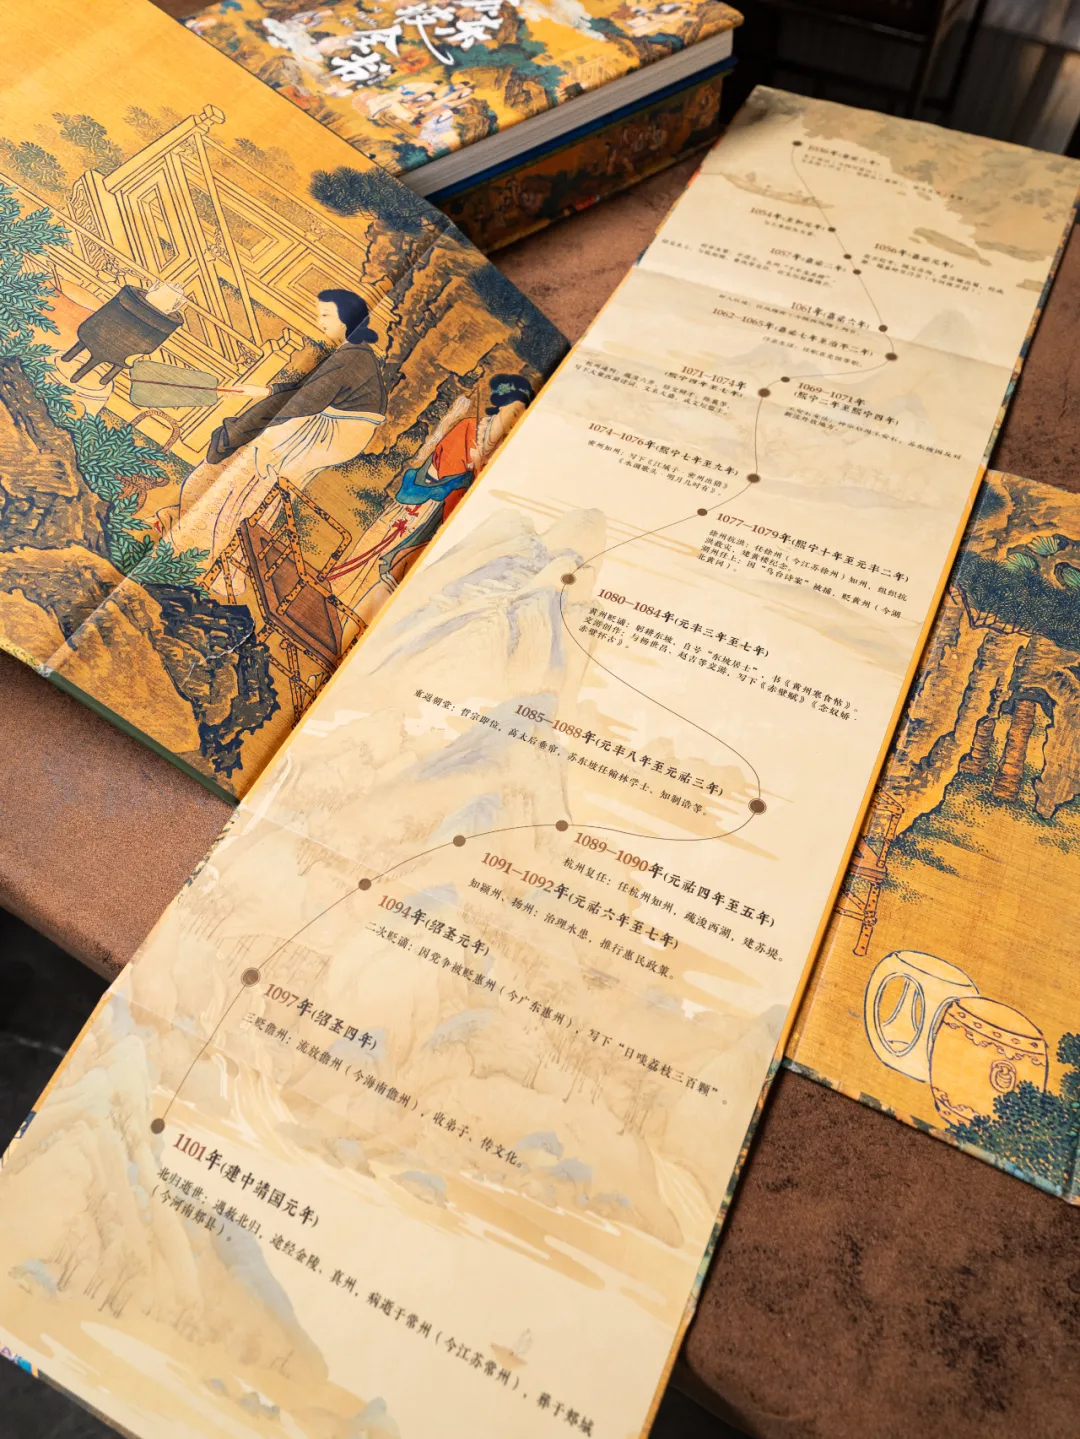 东坡全书
1036年(景祐三年)
1054年(至和元年)
1056年(嘉祐元年)
1057年(嘉祐二年)
1061年(嘉祐六年)
1062—1065年(嘉祐七年至治平二年)
1069—1071年
(熙宁二年至熙宁四年)
1071—1074年
(熙宁四年至七年)
1074—1076年(熙宁七年至九年)
密州知州：写下《江城子·密州出猎》
《水调歌头·明月几时有》。
1077—1079年(熙宁十年至元丰二年)
徐州抗洪：任徐州（今江苏徐州）知州，组织抗
洪救灾，建黄楼纪念。
湖州任上：因“乌台诗案”被捕，贬黄州（今湖
北黄冈）。
1080—1084年(元丰三年至七年)
黄州贬谪：躬耕东坡，自号“东坡居士”，书《黄州寒食帖》。
交游创作：与杨世昌、赵吉等交游，写下《赤壁赋》《念奴娇·
赤壁怀古》。
1085—1088年(元丰八年至元祐三年)
重返朝堂：哲宗即位，高太后垂帘，苏东坡任翰林学士、知制诰等。
1089—1090年(元祐四年至五年)
杭州复任：任杭州知州，疏浚西湖，建苏堤。
1091—1092年(元祐六年至七年)
知颍州、扬州：治理水患，推行惠民政策。
1094年(绍圣元年)
二次贬谪：因党争被贬惠州（今广东惠州），写下“日啖荔枝三百颗”。
1097年(绍圣四年)
三贬儋州：流放儋州（今海南儋州），收弟子、传文化。
1101年(建中靖国元年)
北归逝世：遇赦北归，途经金陵、真州，病逝于常州（今江苏常州），葬于郏城
（今河南郏县）。